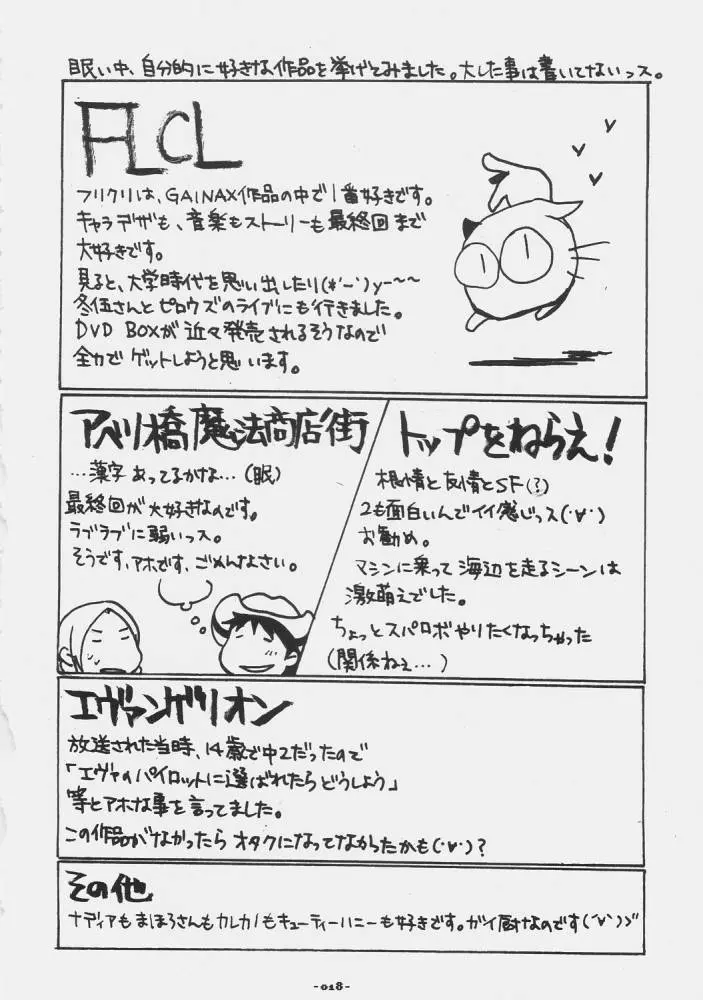 眠い中、自分的に好きな作品を挙げてみました。大した事は書いてないっス。
FLCL
フリクリは、GAINAX作品の中で1番好きです。
キャラデザも、音楽もストーリーも最終回まで
大好きです。
見ると、大学時代を思い出したり(*'ー`)yー~~
冬伍さんとピロウズのライブにも行きました。
DVD BOXが近々発売されるそうなので
全力でゲットしようと思います。
アベノ橋魔法商店街
…漢字あってるかな…(眠)
最終回が大好きなのです。
ラブラブに弱いっス。
そうです、アホです、ごめんなさい。
トップをねらえ!
根情と友情とSF(?)
2も面白いんでイイ感じっス(・∀・)
お勧め。
マシンに乗って海辺を走るシーンは
激萌えでした。
ちょっとスパロボやりたくなっちゃった
(関係ねぇ…)
エヴァンゲリオン
放送された当時、14歳で中2だったので
「エヴァのパイロットに選ばれたらどうしよう」
等とアホな事を言ってました。
この作品がなかったらオタクになってなかったかも(・∀・)?
その他
ナディアもまほろさんもカレカノもキューティーハニーも好きです。ガイ厨なのです(´∀`)ゞ
-018-